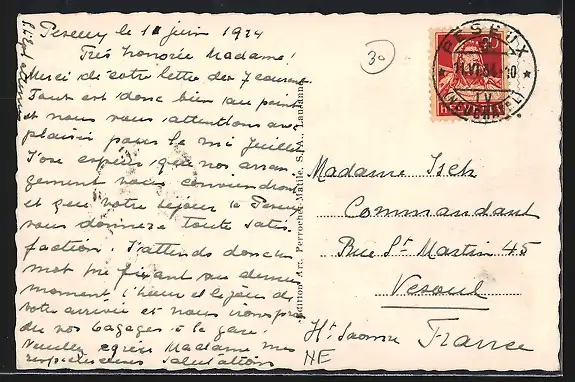 Peseux le 11 juin 1934
Très honorée Madame!
Merci de votre lettre du 7 courant.
Tout est donc bien au point
et nous vous attendons avec
plaisir pour le mi Juillet.
J'ose espérer que nos arran
gement vous conviendront
et que votre séjour à Peseux
vous donnera toute satis
faction. J'attends donc un
mot me fixant au dernier
moment l'heure et le jour de
votre arrivée et nous
de vos bagages à la gare.
Veuillez agréer Madame mes
respectueuses salutations
30
PESEUX
11.VI.34.-10
(NEUCHATEL)
HELVETIA
Edition Art. Perrochet-Matile, S. A., Lausanne
Madame Isch
Commandant
Rue St Martin 45
Vesoul
Hte Saonne France
NE